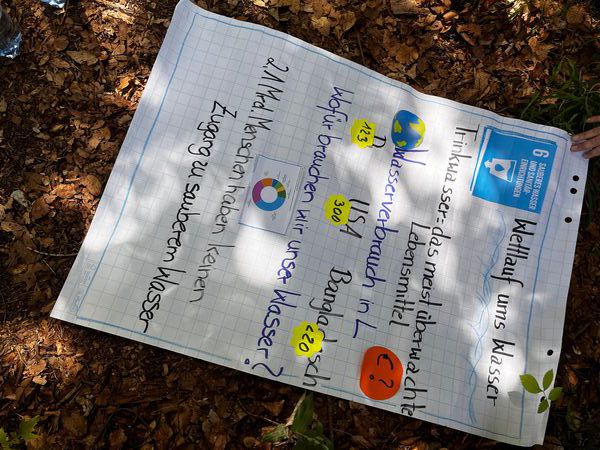 6 SAUBERES WASSER
UND SANITÄR-
EINRICHTUNGEN
Wettlauf ums Wasser
Trinkwasser: das meist überwachte
Lebensmittel
€?
Wasserverbrauch in L
D USA Bangladesch
123 300 <20
Wofür brauchen wir unser Wasser?
2,1 Mrd. Menschen haben keinen
Zugang zu sauberem Wasser